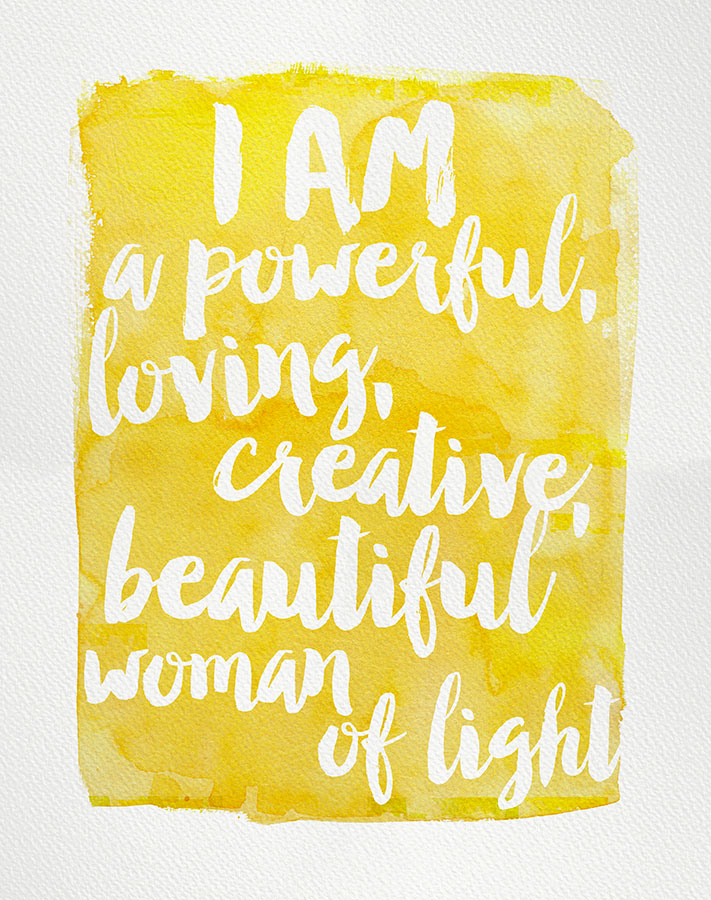 I AM
a powerful,
loving,
creative,
beautiful
woman
of light